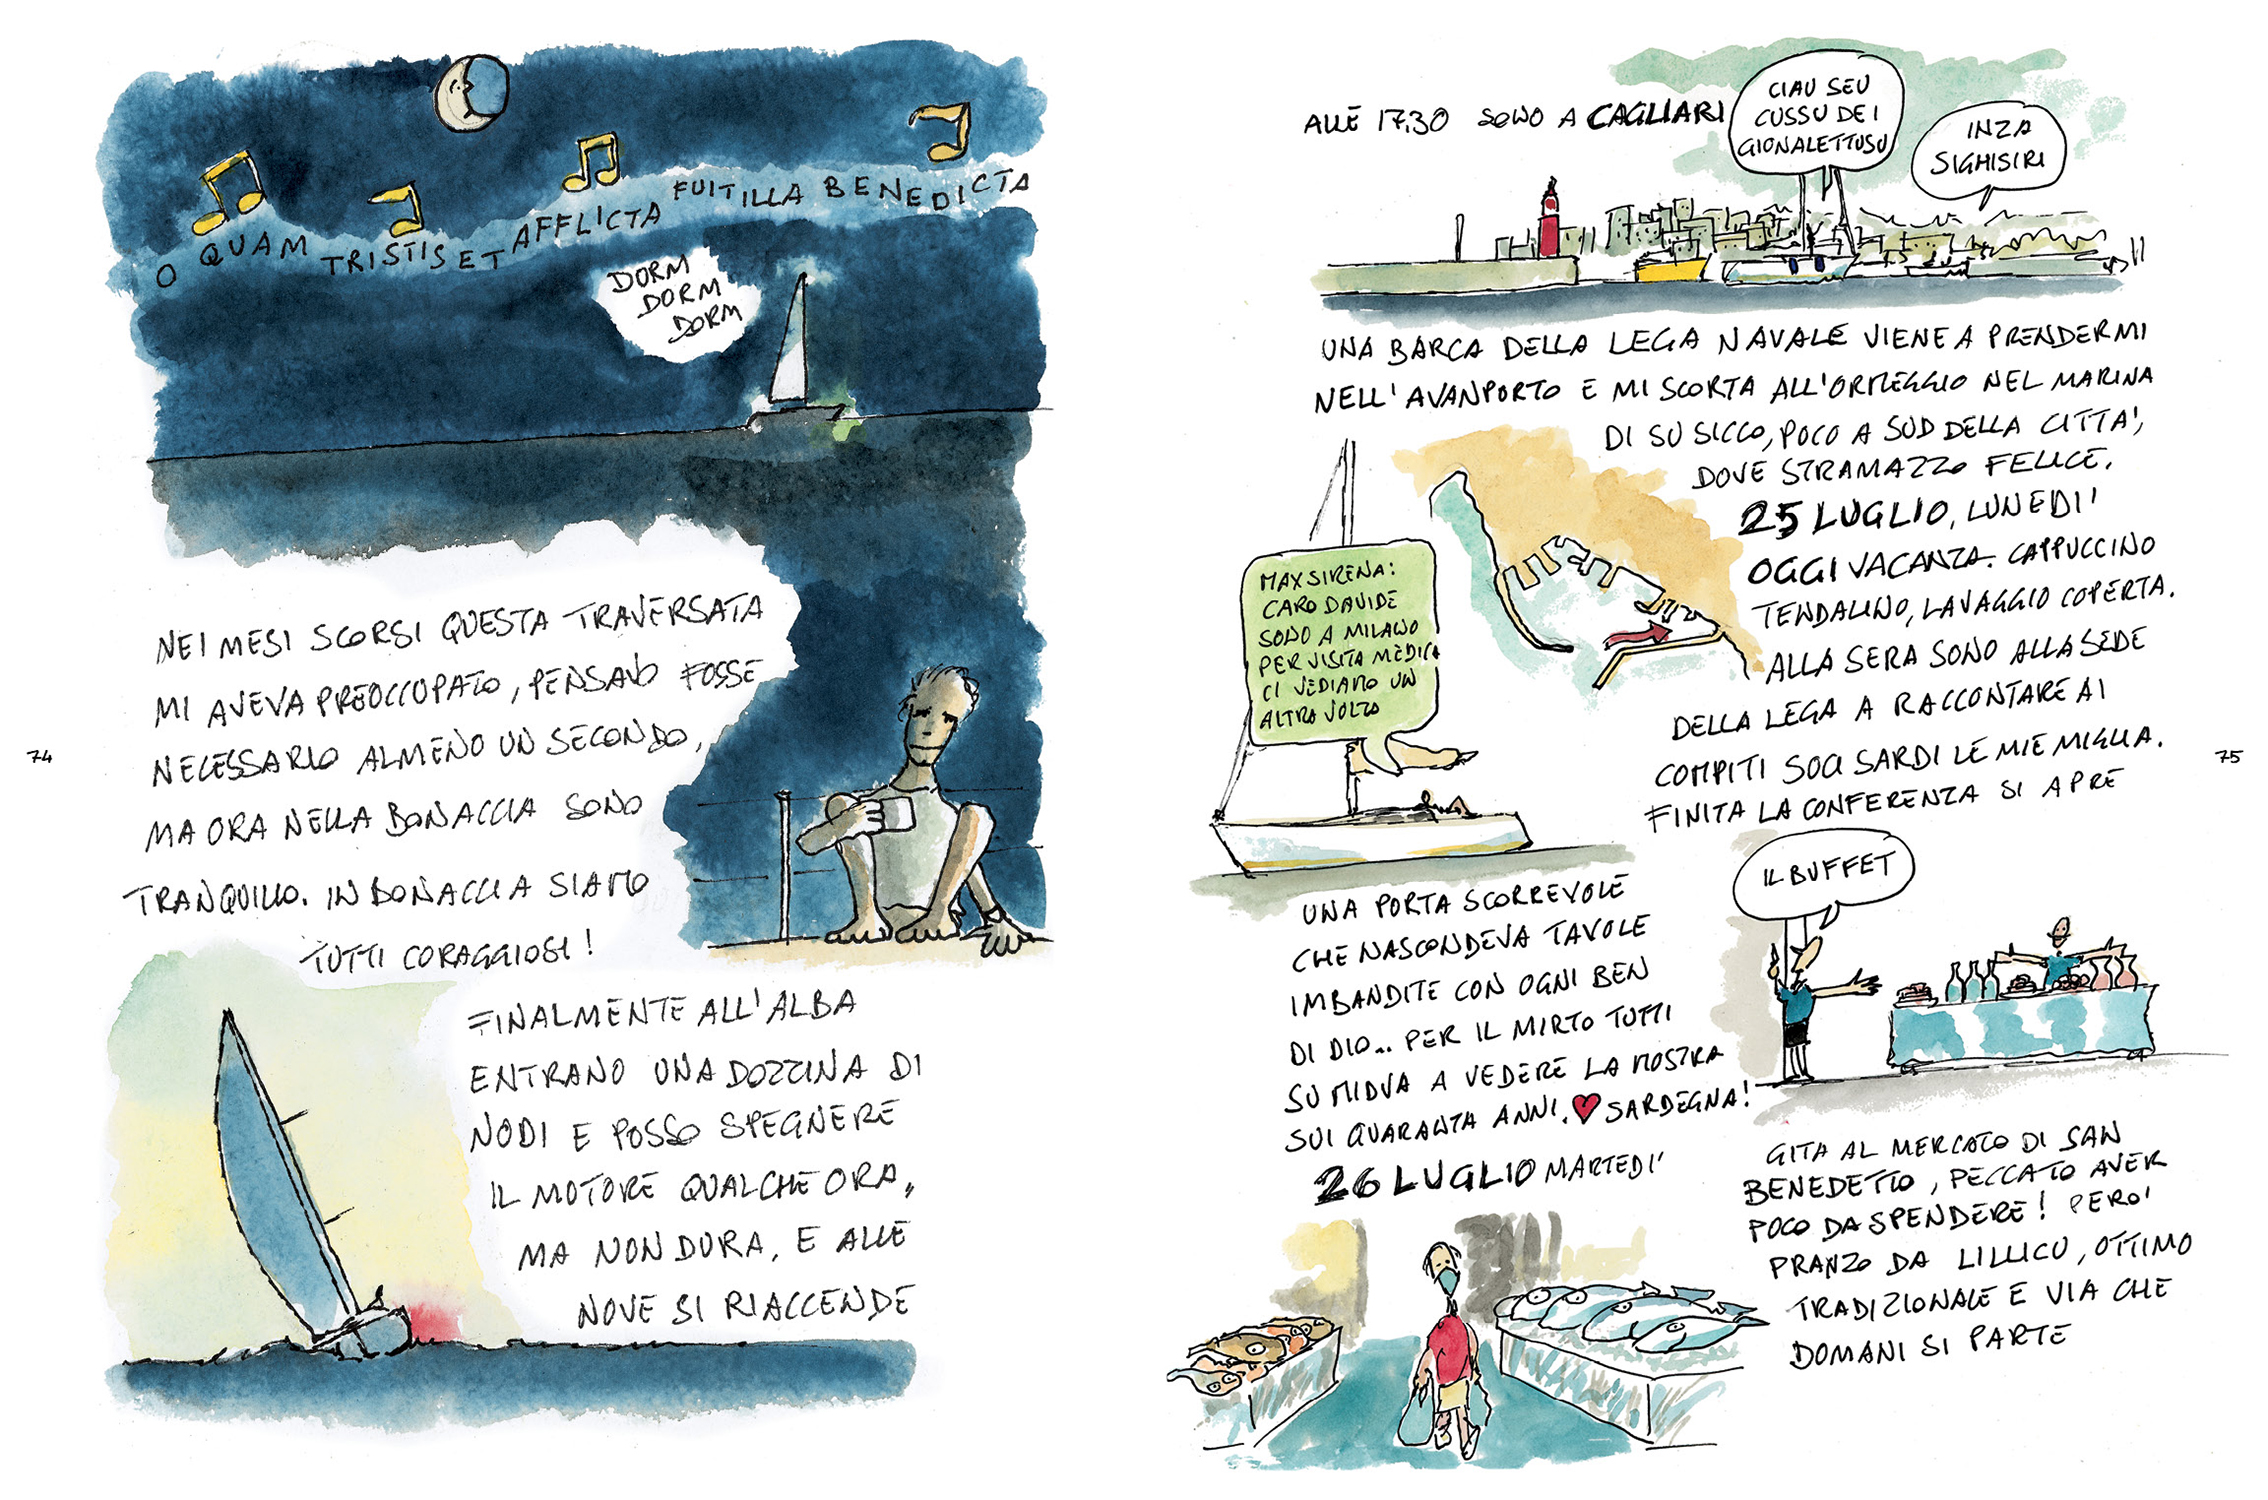 O QUAM TRISTIS ET AFFLICTA FUIT ILLA BENEDICTA
DORM
DORM
DORM
NEI MESI SCORSI QUESTA TRAVERSATA
MI AVEVA PREOCCUPATO, PENSAVO FOSSE
NECESSARIO ALMENO UN SECONDO,
MA ORA NELLA BONACCIA SONO
TRANQUILLO. IN BONACCIA SIAMO
TUTTI CORAGGIOSI!
FINALMENTE ALL'ALBA
ENTRANO UNA DOZZINA DI
NODI E POSSO SPEGNERE
IL MOTORE QUALCHE ORA,
MA NON DURA, E ALLE
NOVE SI RIACCENDE
74
ALLE 17,30 SONO A CAGLIARI
CIAU SEU
CUSSU DE I
GIONALETTUSU
INZA
SIGHISIRI
UNA BARCA DELLA LEGA NAVALE VIENE A PRENDERMI
NELL'AVANPORTO E MI SCORTA ALL'ORMEGGIO NEL MARINA
DI SU SICCO, POCO A SUD DELLA CITTA',
DOVE STRAMAZZO FELICE.
25 LUGLIO, LUNEDI'
OGGI VACANZA. CAPPUCCINO
TENDALINO, LAVAGGIO COPERTA.
ALLA SERA SONO ALLA SEDE
DELLA LEGA A RACCONTARE AI
COMPITI SOCI SARDI LE MIE MIGLIA.
FINITA LA CONFERENZA SI APRE
MAX SIRENA:
CARO DAVIDE
SONO A MILANO
PER VISITA MEDICA
CI VEDIAMO UN
ALTRA VOLTA
IL BUFFET
UNA PORTA SCORREVOLE
CHE NASCONDEVA TAVOLE
IMBANDITE CON OGNI BEN
DI DIO... PER IL MIRTO TUTTI
SU MIDVA A VEDERE LA MOSTRA
SUI QUARANTA ANNI. ♥ SARDEGNA!
26 LUGLIO MARTEDI'
GITA AL MERCATO DI SAN
BENEDETTO, PECCATO AVER
POCO DA SPENDERE! PERO'
PRANZO DA LILLICU, OTTIMO
TRADIZIONALE E VIA CHE
DOMANI SI PARTE
75